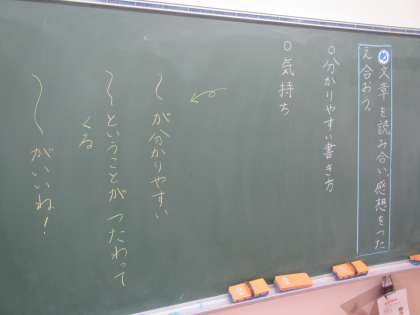 め 文章を読み合い、感想をつた
え合おう。
○分かりやすい書き方
○気持ち
〜が分かりやすい
〜ということが つたわって
くる
〜がいいね！